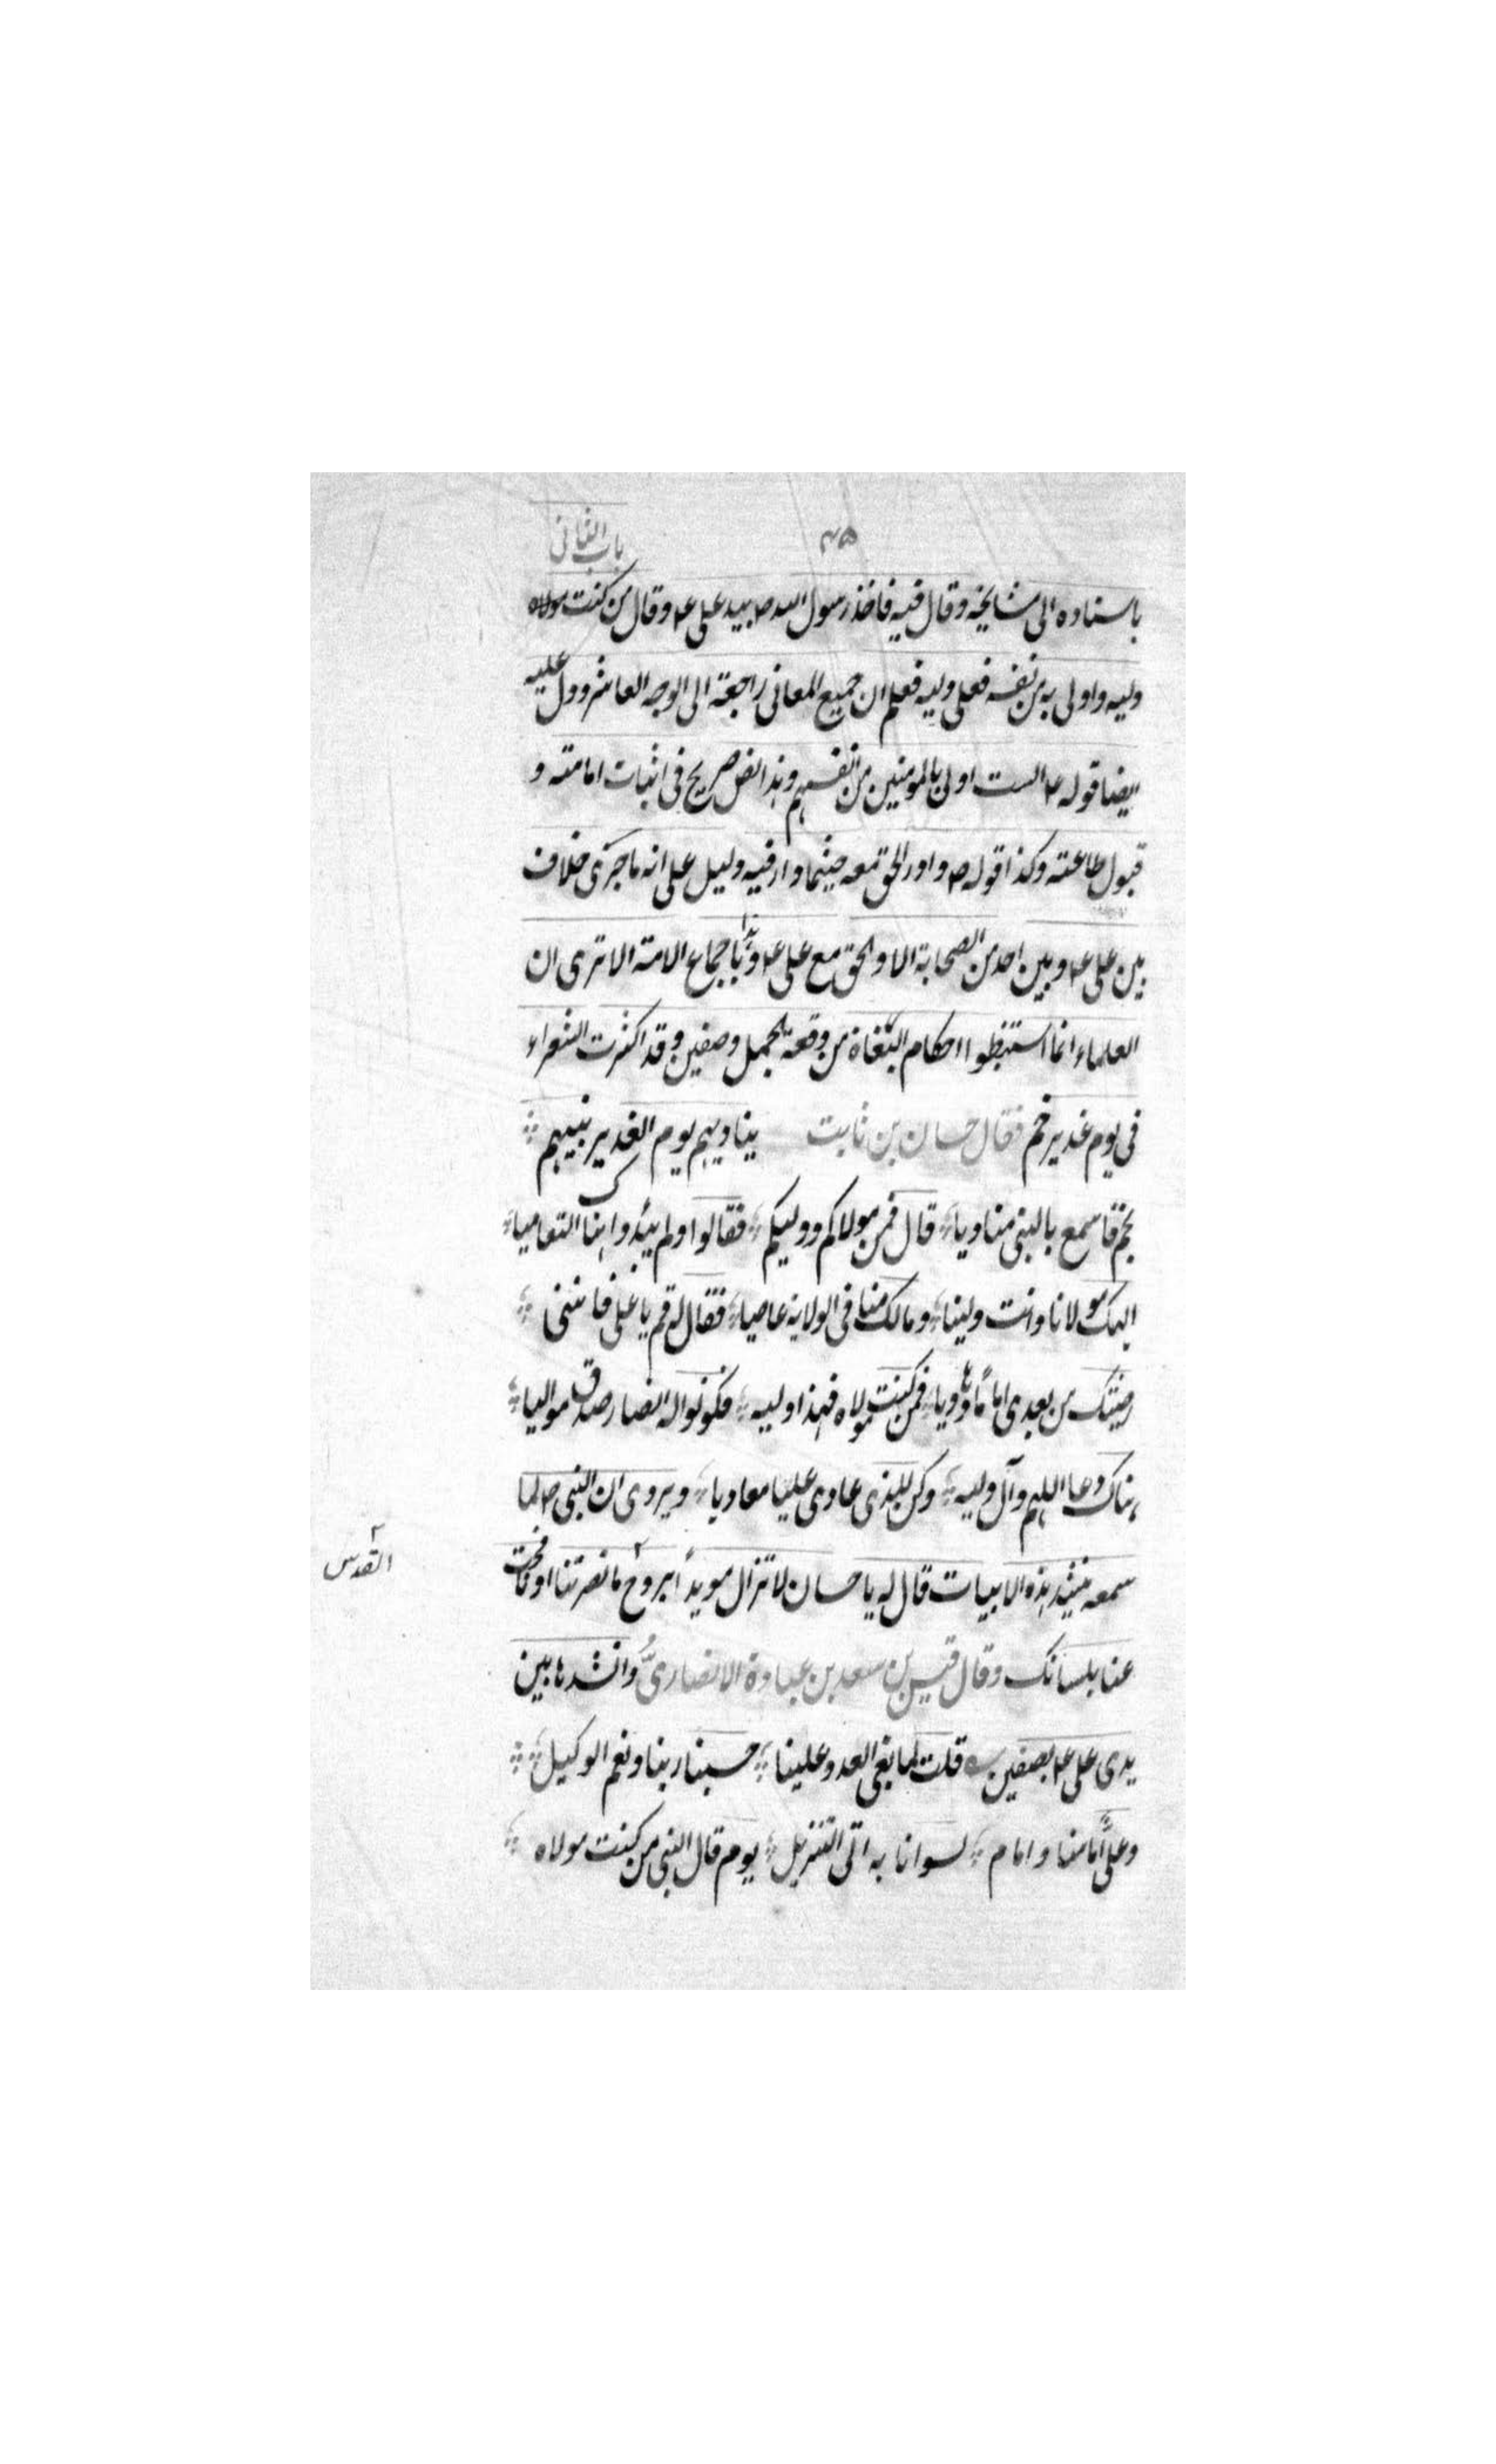 ٤٥ باب الثانی
باسناده الی مشایخه وقال فیه فاخذ رسول الله ص بید علی ع وقال من کنت مولاه
ولیه واولی به من نفسه فعلی ولیه فعلم ان جمیع المعانی راجعة الی الوجه العاشر ودل علیه
ایضا قوله ع الست اولی بالمومنین من انفسهم وهذا نص صریح فی اثبات امامته و
قبول طاعته وکذا قوله ص وادر الحق معه حیثما دار فیه دلیل علی انه ما جری خلاف
بین علی ع وبین احد من الصحابة الا والحق مع علی ع وهذا باجماع الامة الا تری ان
العلماء انما استنبطوا احکام البغاة من وقعة الجمل وصفین وقد اکثرت الشعراء
فی یوم غدیر خم فقال حسان بن ثابت ینادیهم یوم الغدیر نبیهم
بخم فاسمع بالنبی منادیا قال فمن مولاکم وولیکم فقالوا ولم یبدوا هناک التعامیا
الهک مولانا وانت ولینا ومالک منا فی الولایة عاصیا فقال له قم یا علی فاننی
رضیتک من بعدی اماما وهادیا فمن کنت مولاه فهذا ولیه فکونوا له انصار صدق موالیا
هناک دعا اللهم وال ولیه وکن للذی عادی علیا معادیا ویروی ان النبی ص لما
سمعه ینشد هذه الابیات قال له یا حسان لا تزال مویداً بروح ما نصرتنا او نافحت
القدس
عنا بلسانک وقال قیس بن سعد بن عبادة الانصاریُّ وانشدها بین
یدی علی ع بصفین قلت لما بغی العدو علینا حسبنا ربنا ونعم الوکیل
وعلیٌّ امامنا وامام لسوانا به اتی التنزیل یوم قال النبی من کنت مولاه